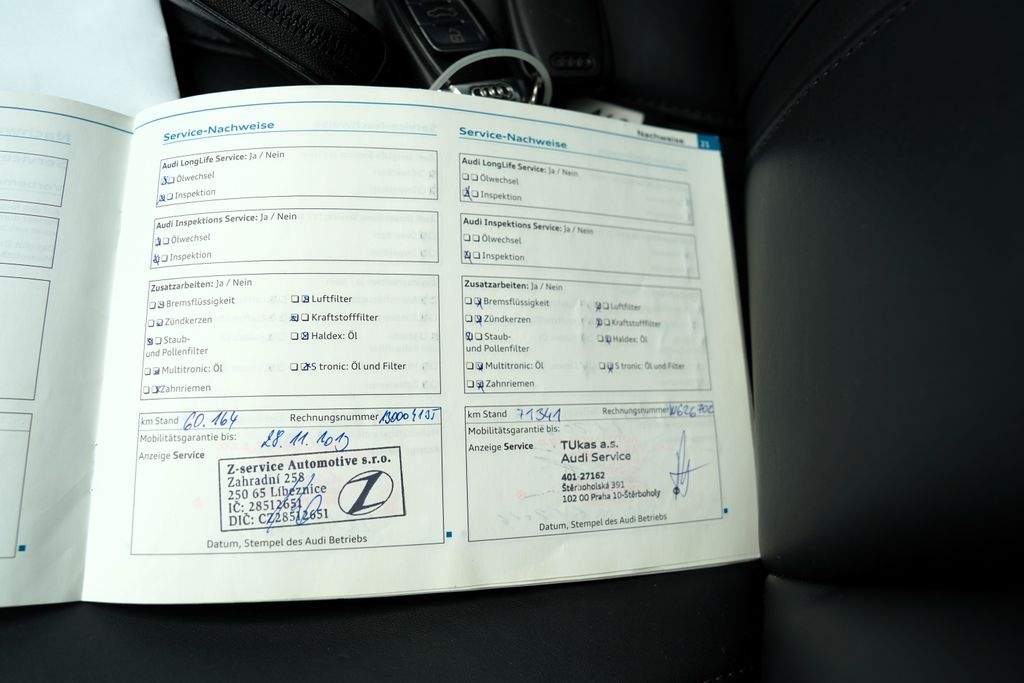 Nachweise 21
Service-Nachweise
Audi LongLife Service: Ja / Nein
Ölwechsel
Inspektion
Audi Inspektions Service: Ja / Nein
Ölwechsel
Inspektion
Zusatzarbeiten: Ja / Nein
Bremsflüssigkeit Luftfilter
Zündkerzen Kraftstofffilter
Staub- Haldex: Öl
und Pollenfilter
Multitronic: Öl S tronic: Öl und Filter
Zahnriemen
km Stand 60.164 Rechnungsnummer
Mobilitätsgarantie bis: 28.11.
Anzeige Service
Z-service Automotive s.r.o.
Zahradní 258
250 65 Líbeznice
IČ: 28512651
DIČ: CZ28512651
Datum, Stempel des Audi Betriebs
Service-Nachweise
Audi LongLife Service: Ja / Nein
Ölwechsel
Inspektion
Audi Inspektions Service: Ja / Nein
Ölwechsel
Inspektion
Zusatzarbeiten: Ja / Nein
Bremsflüssigkeit Luftfilter
Zündkerzen Kraftstofffilter
Staub- Haldex: Öl
und Pollenfilter
Multitronic: Öl S tronic: Öl und Filter
Zahnriemen
km Stand 71341 Rechnungsnummer
Mobilitätsgarantie bis:
Anzeige Service
TUkas a.s.
Audi Service
401-27162
Štěrboholská 391
102 00 Praha 10-Štěrboholy
Datum, Stempel des Audi Betriebs